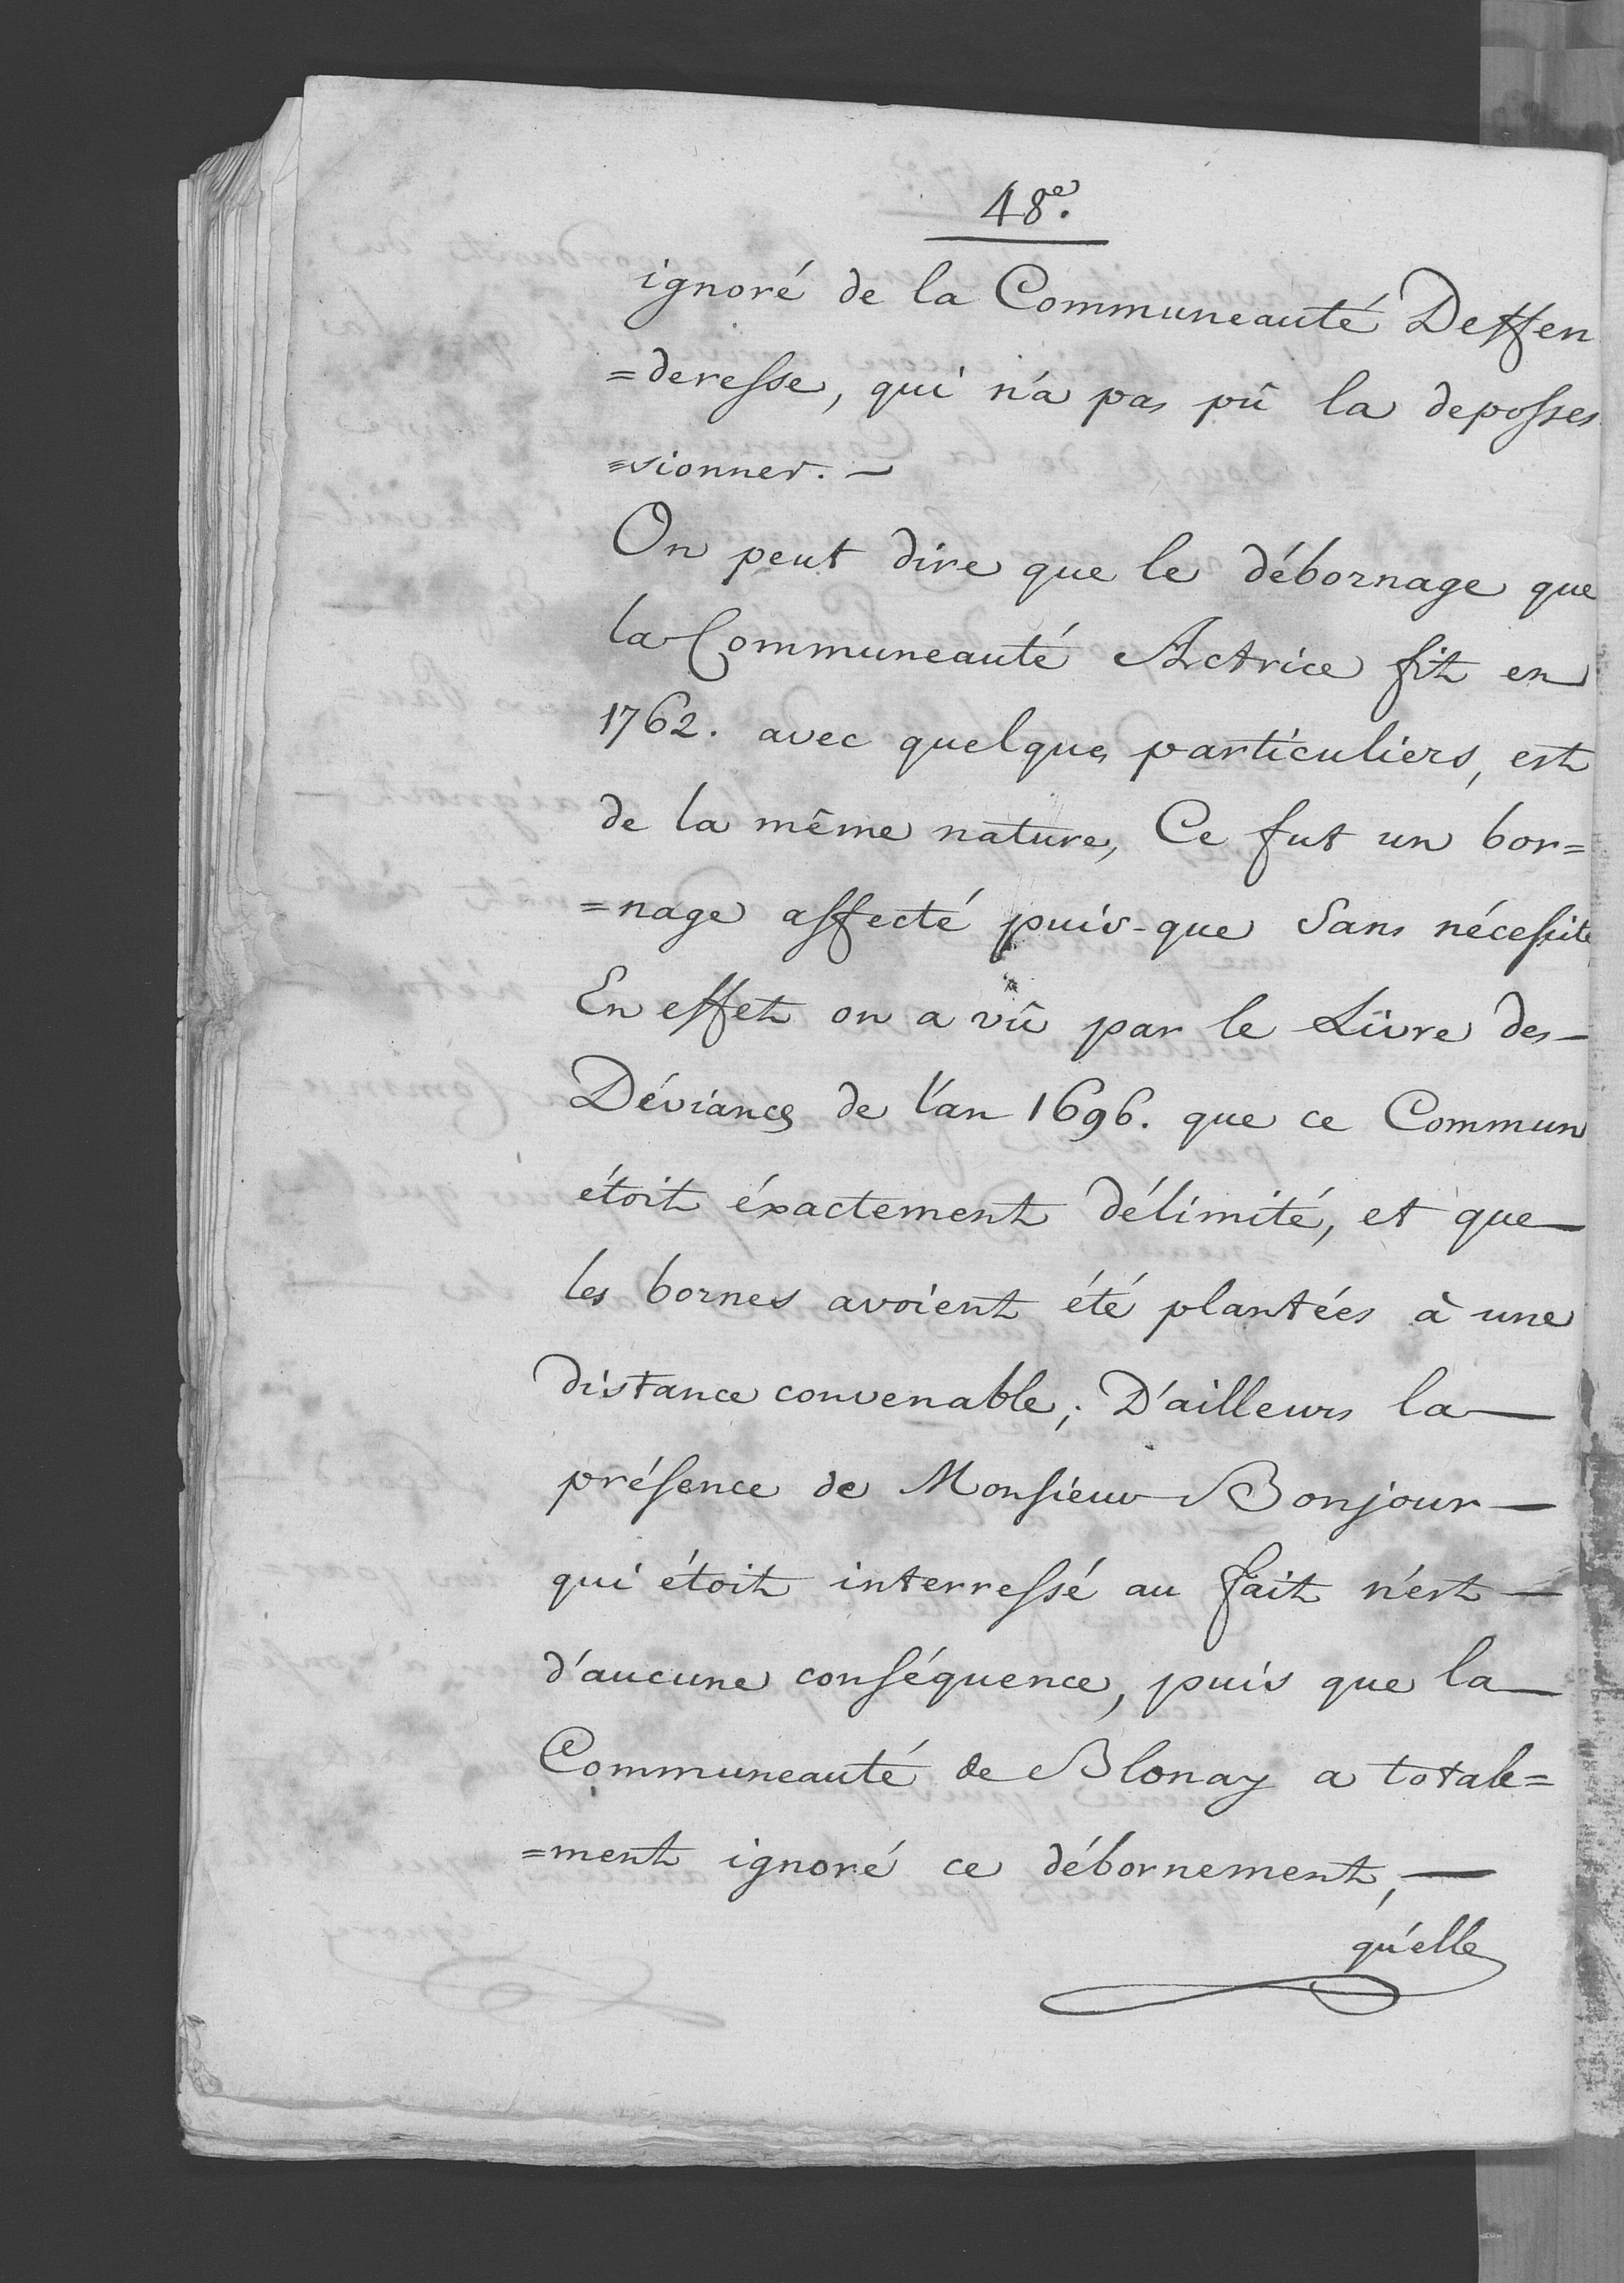 48e.
ignoré de la Communeauté Deffen
=deresse, qui n'a pas pû la deposses
=sionner. —
On peut dire que le débornage que
la Communeauté Actrice fit en
1762. avec quelques particuliers, est
de la même nature, Ce fut un bor=
=nage affecté puis-que Sans nécessité
En effet on a vû par le Livre des —
Déviances de l'an 1696. que ce Commun
étoit éxactement délimité, et que —
les bornes avoient été plantées à une
distance convenable; D'ailleurs la —
présence de Monsieur Bonjour —
qui étoit interressé au fait n'est —
d'aucune conséquence, puis que la —
Communeauté de Blonay a totale=
=ment ignoré ce débornement, —
qu'elle